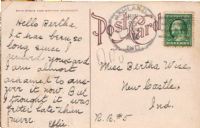 Hello Bertha,
It has been so
long since I
received your card
I am almost
ashamed to ans-
wer it now. But
I thought it was
better late than
never.
Post Card
Miss Bertha Wise
New Castle,
Ind.
R.R. #5